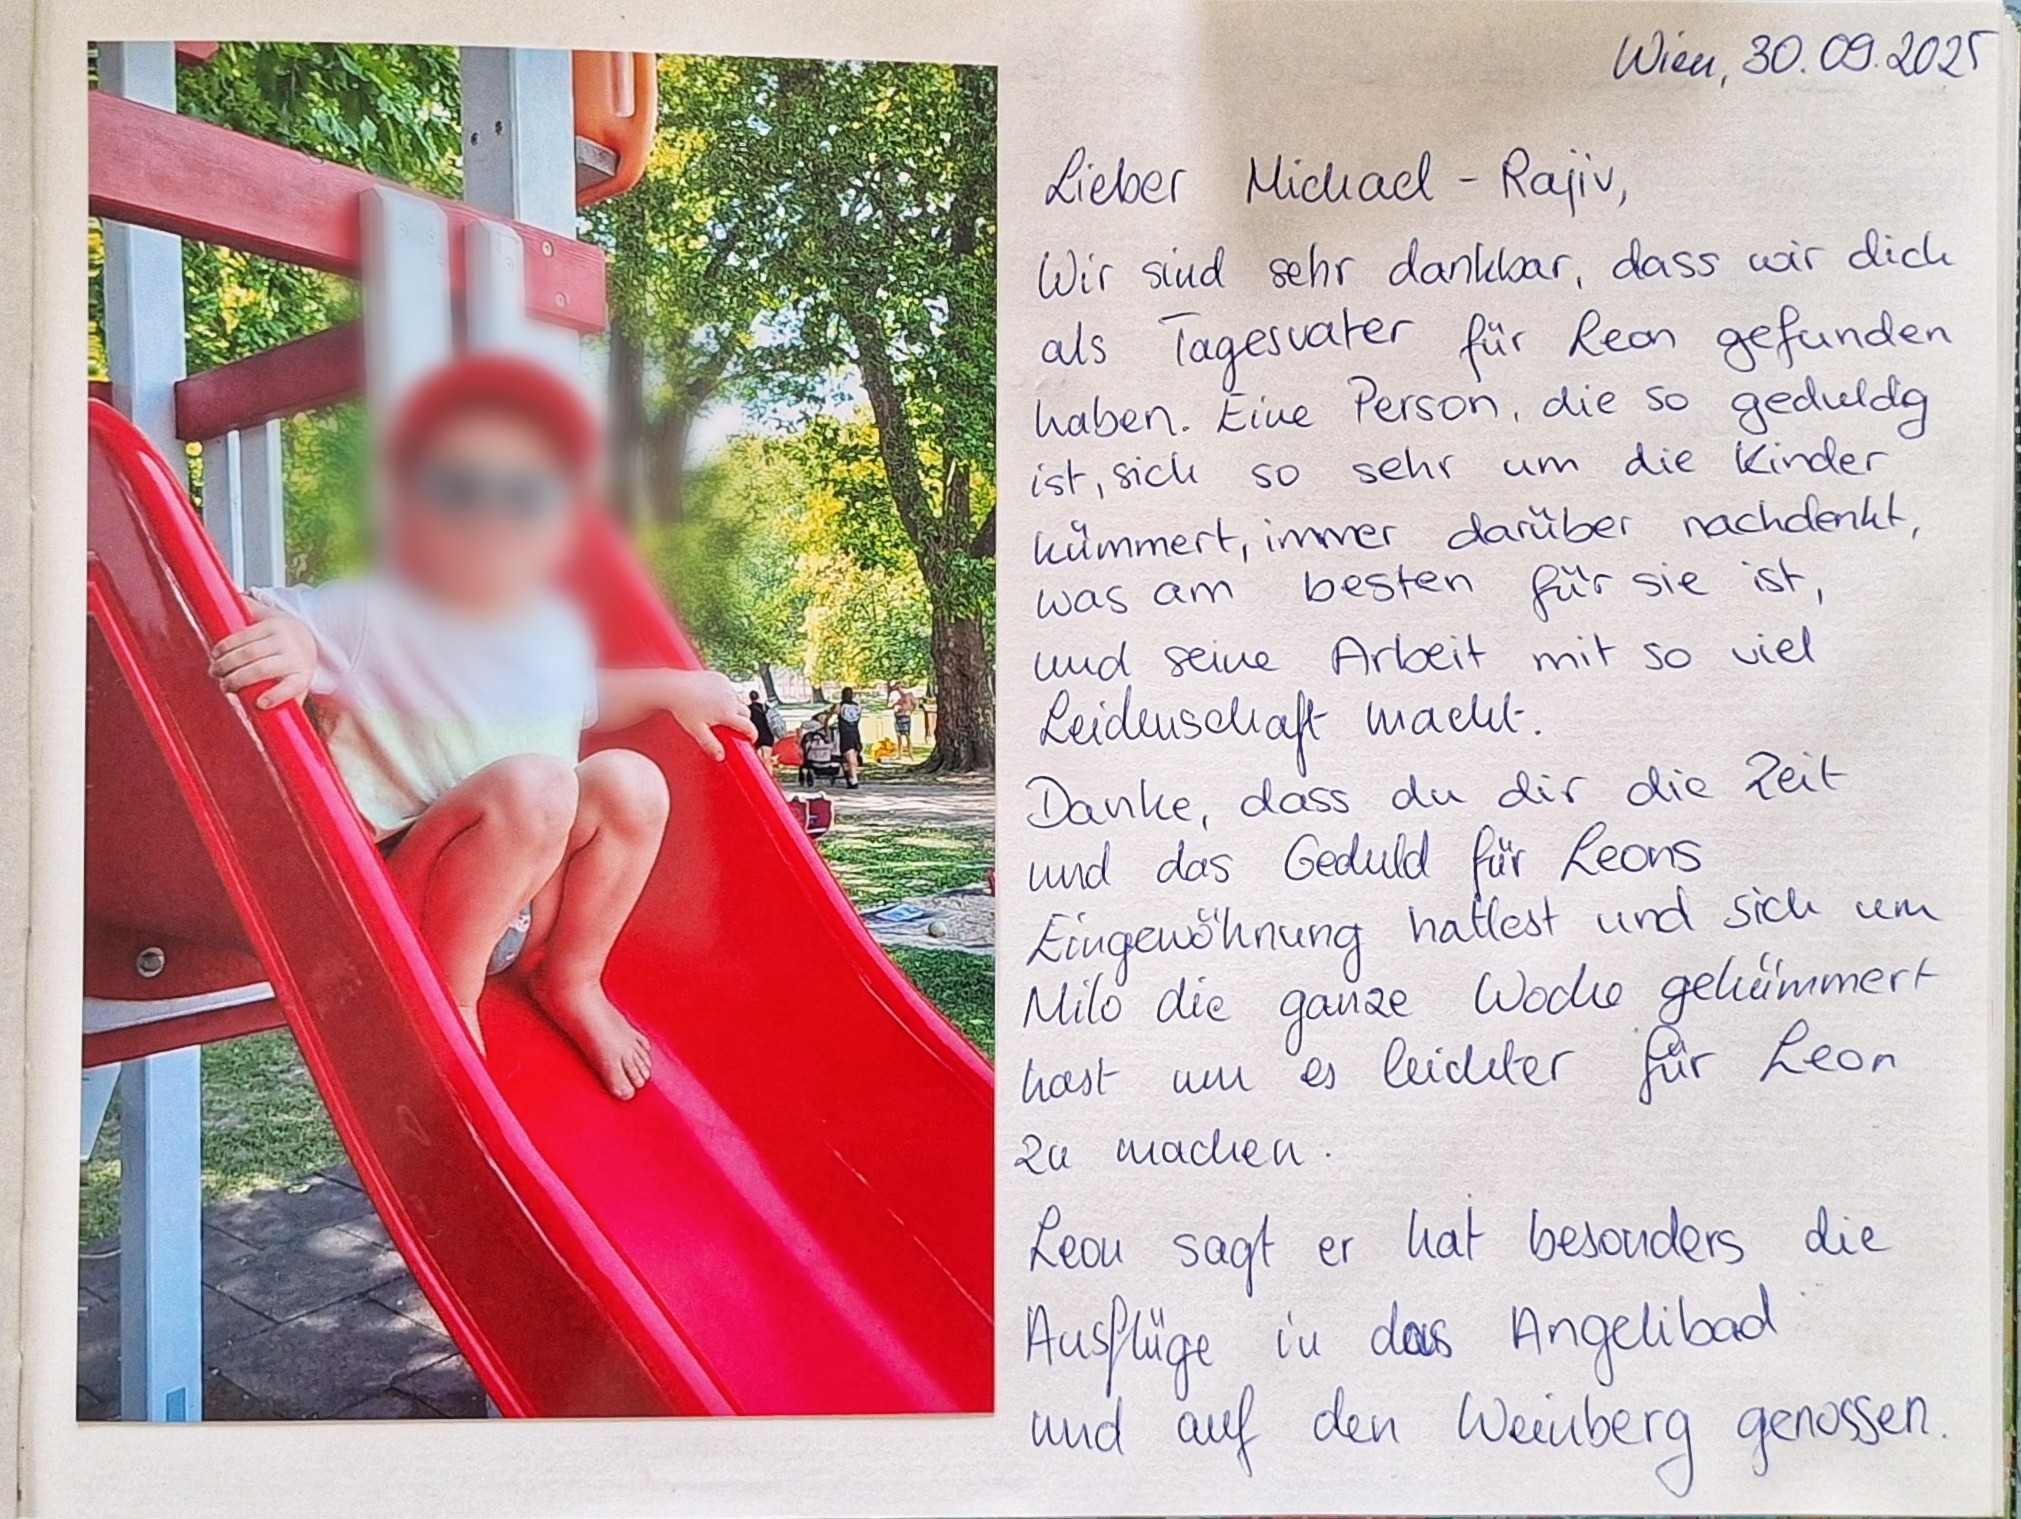 Wien, 30.09.2025
Lieber Michael - Rajiv,
Wir sind sehr dankbar, dass wir dich
als Tagesvater für Leon gefunden
haben. Eine Person, die so geduldig
ist, sich so sehr um die Kinder
kümmert, immer darüber nachdenkt,
was am besten für sie ist,
und seine Arbeit mit so viel
Leidenschaft macht.
Danke, dass du dir die Zeit
und das Geduld für Leons
Eingewöhnung hattest und sich um
Milo die ganze Woche gekümmert
hast um es leichter für Leon
zu machen.
Leon sagt er hat besonders die
Ausflüge in das Angelibad
und auf den Weinberg genossen.